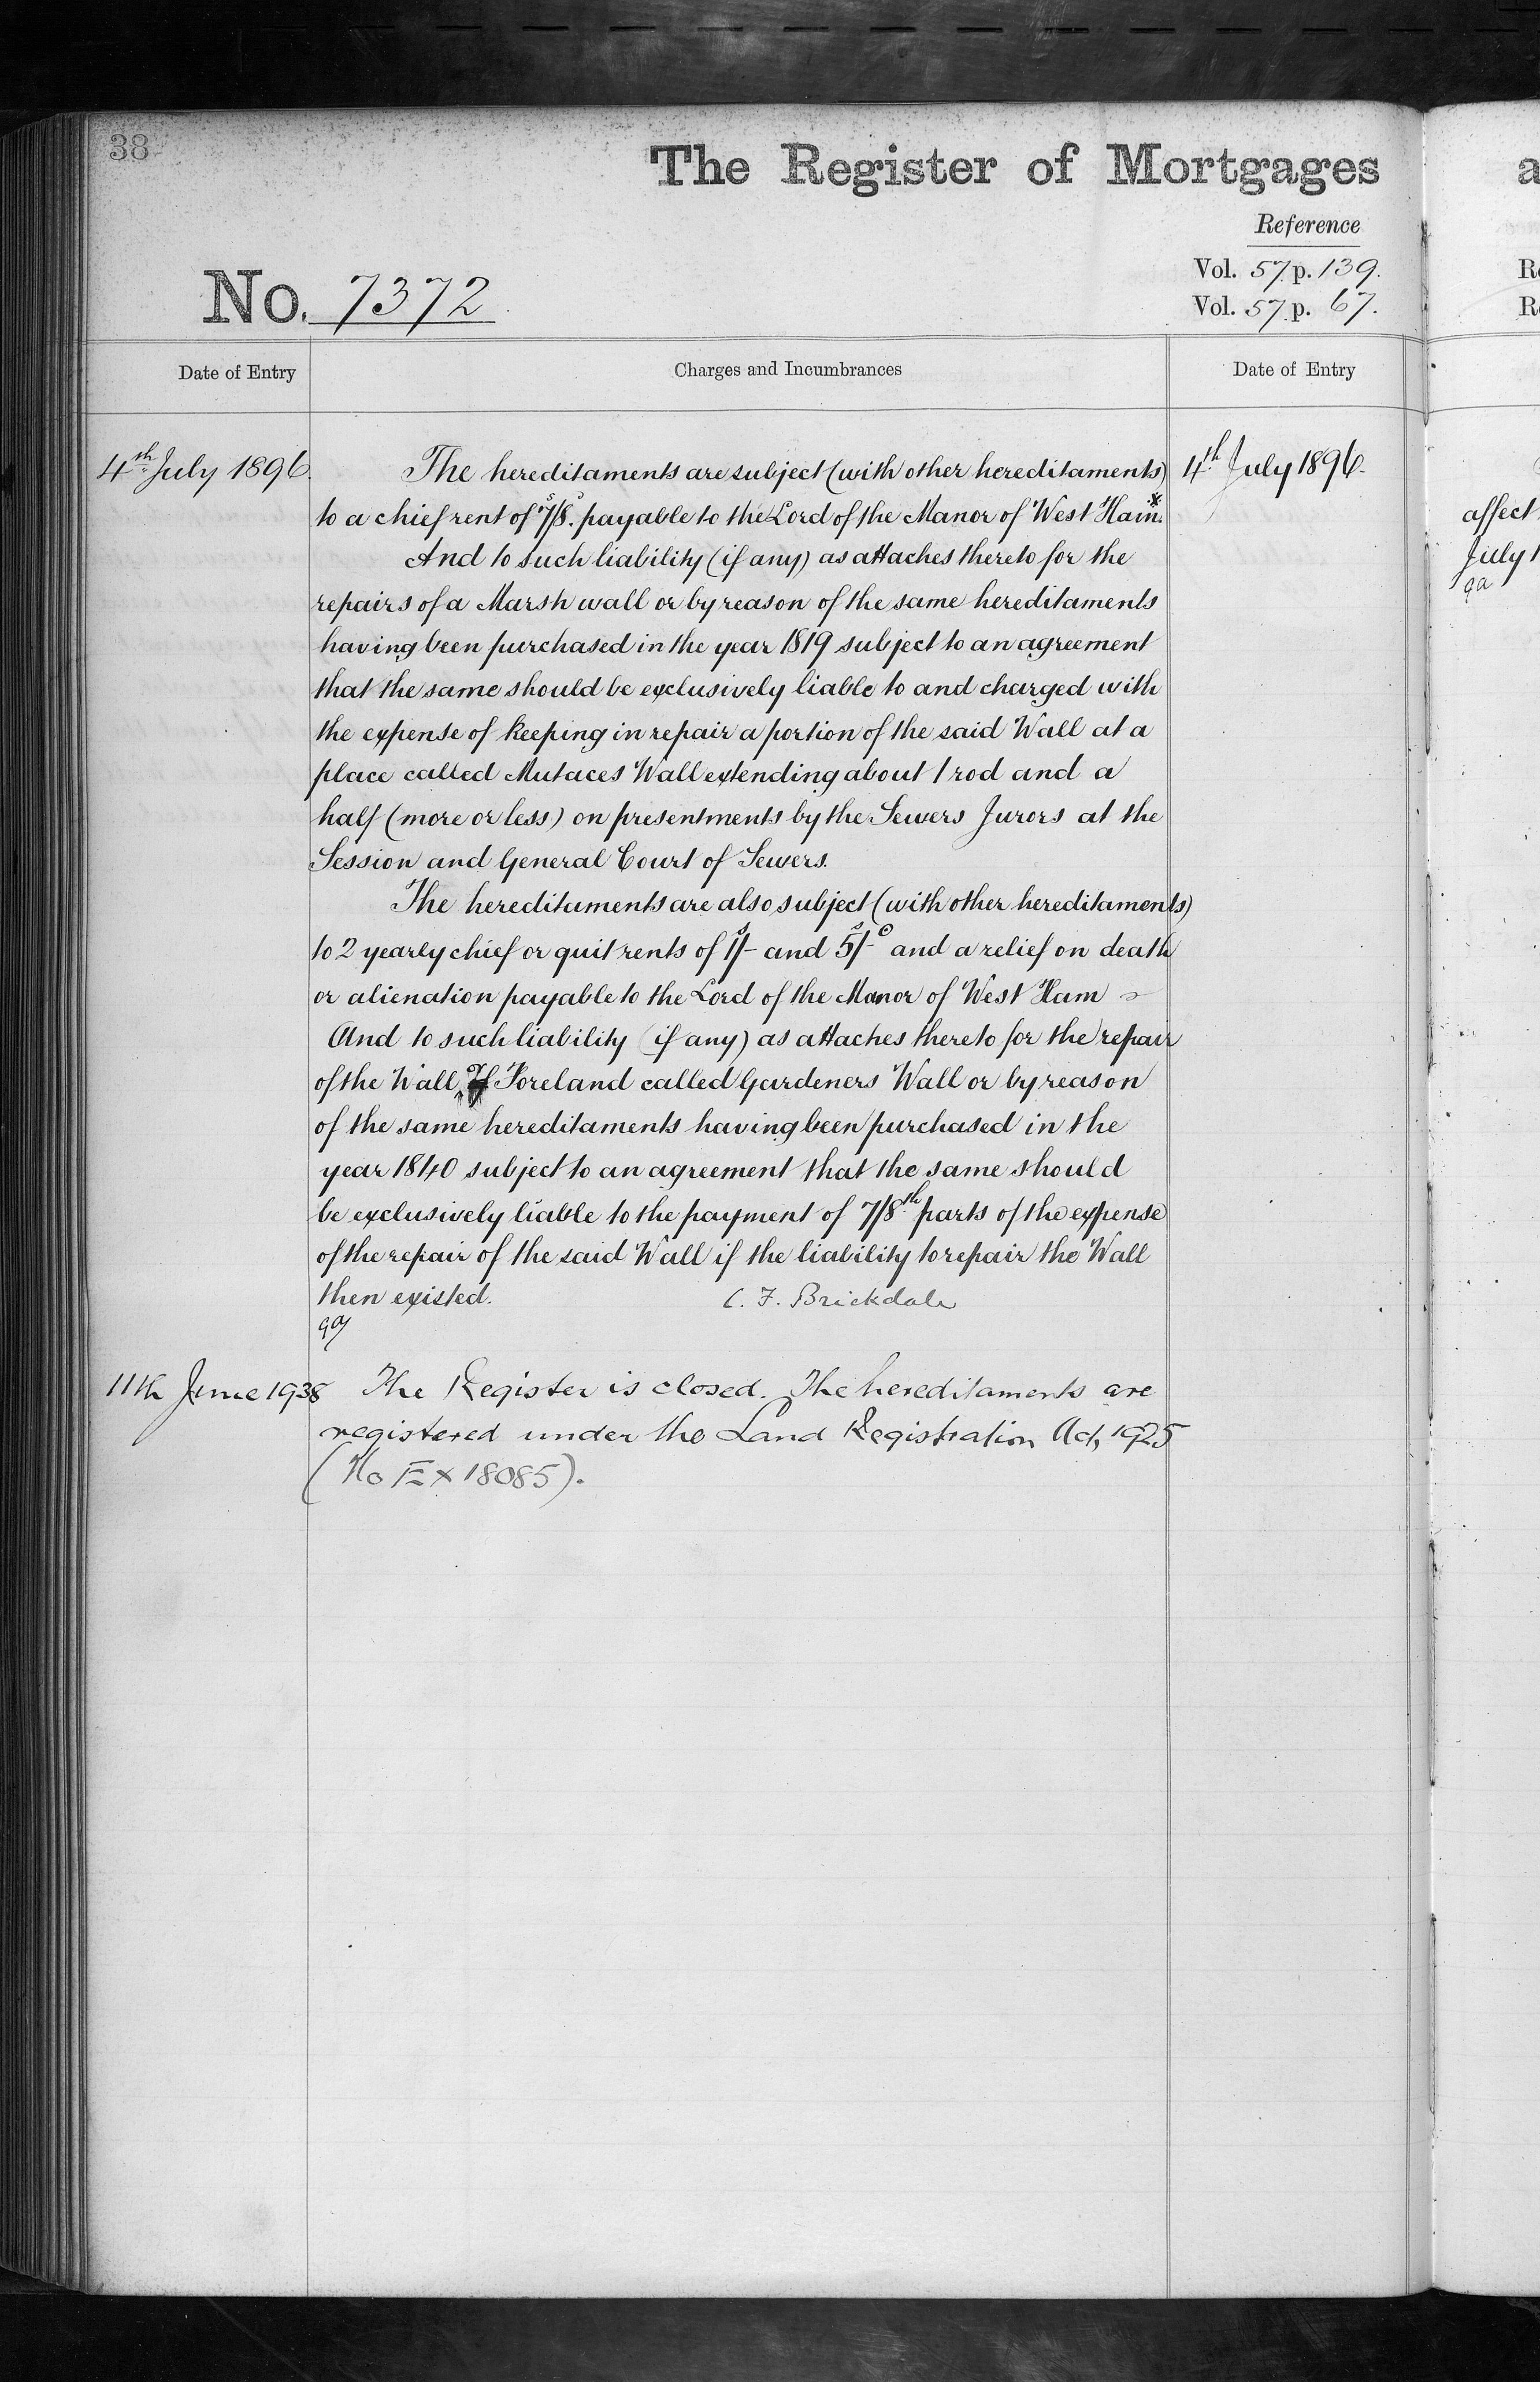 38
The Register of Mortgages
Reference
Vol. 57 p. 139.
No. 7372
Vol. 57 p. 67.
Date of Entry
Charges and Incumbrances
Date of Entry
4th July 1896.
The hereditaments are subject (with other hereditaments)
4th July 1896.
to a chief rent of 7/8. payable to the Lord of the Manor of West Ham.
And to such liability (if any) as attaches thereto for the
repairs of a Marsh wall or by reason of the same hereditaments
having been purchased in the year 1819 subject to an agreement
that the same should be exclusively liable to and charged with
the expense of keeping in repair a portion of the said Wall at a
place called Mutaces Wall extending about 1 rod and a
half (more or less) on presentments by the Sewers Jurors at the
Session and General Court of Sewers.
The hereditaments are also subject (with other hereditaments)
to 2 yearly chief or quit rents of 1/- and 5/- and a relief on death
or alienation payable to the Lord of the Manor of West Ham
And to such liability (if any) as attaches thereto for the repair
of the Wall, of Foreland called Gardeners Wall or by reason
of the same hereditaments having been purchased in the
year 1840 subject to an agreement that the same should
be exclusively liable to the payment of 7/8th parts of the expense
of the repair of the said Wall if the liability to repair the Wall
then existed.
C. F. Brickdale
11th June 1938
The Register is closed. The hereditaments are
registered under the Land Registration Act, 1925
(No EX 18085).
a
R
R
affect
July 1
ga